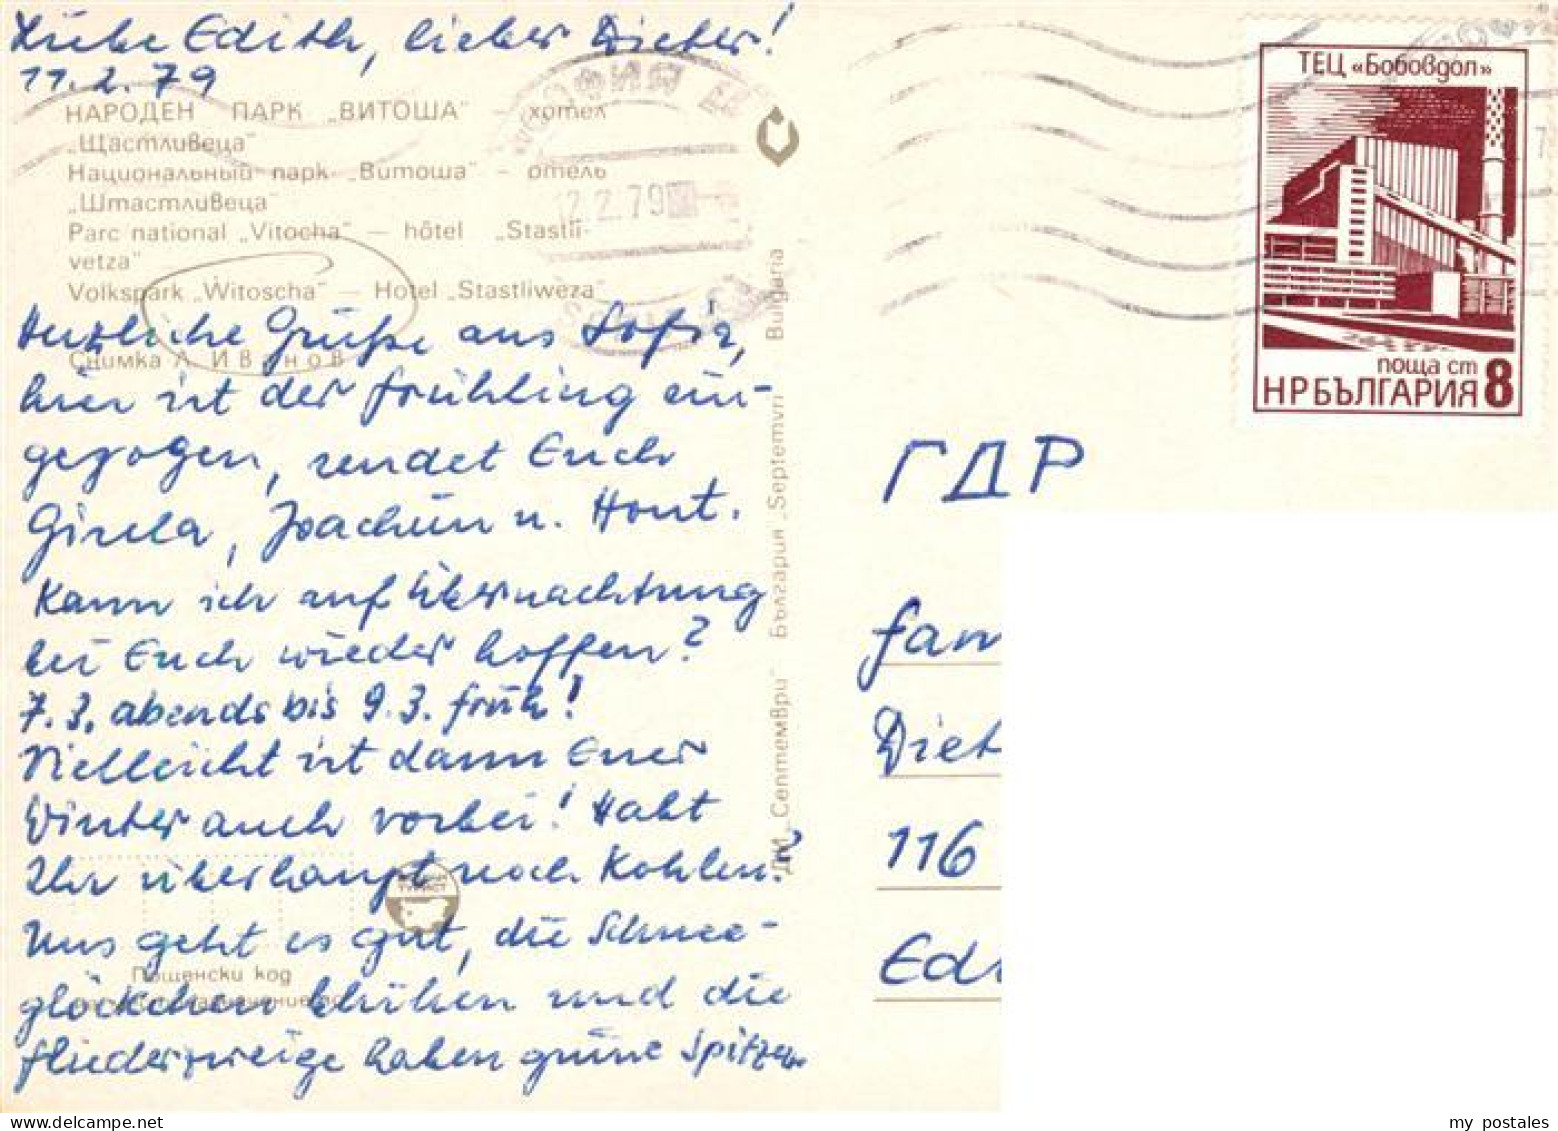 Liebe Edith, lieber Dieter!
11.2.79
НАРОДЕН ПАРК „ВИТОША" — хотел
„Щастливеца"
Национальный парк „Витоша" — отель
„Штастливеца"
Parc national „Vitocha" — hôtel „Stastli-
vetza"
Volkspark „Witoscha" — Hotel „Stastliweza"
Herzliche Grüße aus Sofia,
Снимка Л. Иванов
hier ist der Frühling ein-
gezogen, sendet Euch
Gisela, Joachim u. Horst.
Kann ich auf Übernachtung
bei Euch wieder hoffen?
7.3. abends bis 9.3. früh!
Vielleicht ist dann Euer
Winter auch vorbei! Habt
Ihr überhaupt noch Kohlen?
Uns geht es gut, die Schnee-
Пощенски код
glöckchen blühen und die
Fliederzweige haben grüne Spitzen.
ДИ „Септември" България „Septemvri" Bulgaria
СОФИЯ
12.2.79
ТЕЦ «Бобовдол»
поща ст
НРБЪЛГАРИЯ 8
ГДР
Fam
Diet
116
Edi
my postales
delcampe.net